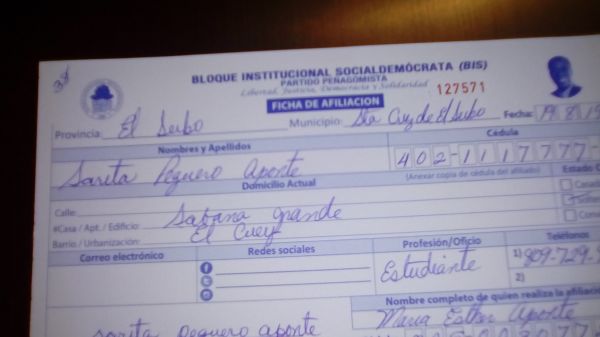 38
BLOQUE INSTITUCIONAL SOCIALDEMÓCRATA (BIS)
PARTIDO PEÑAGOMISTA
Libertad, Justicia, Democracia y Solidaridad
127571
FICHA DE AFILIACION
Provincia: El Seibo Municipio: Sta Cruz de El Seibo Fecha: 19/8/1
Nombres y Apellidos Cédula
Sarita Peguero Aponte 402-1117777-
(Anexar copia de cédula del afiliado)
Domicilio Actual Estado C
Calle: Casad
#Casa / Apt. / Edificio: Sabana grande Solter
Barrio / Urbanización: El Cuey
Correo electrónico Redes sociales Profesión/Oficio Teléfonos
Estudiante 1) 809-729-
2)
Nombre completo de quien realiza la afiliac
Sarita Peguero Aponte Maria Esther Aponte